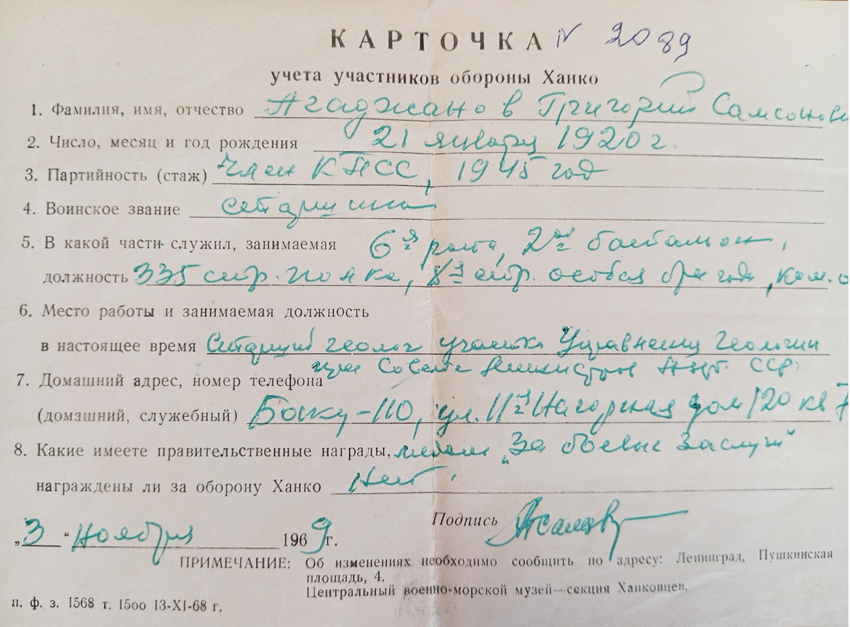 КАРТОЧКА № 2089
учета участников обороны Ханко
1. Фамилия, имя, отчество Агаджанов Григорий Самсонови
2. Число, месяц и год рождения 21 января 1920 г.
3. Партийность (стаж) член КПСС, 1945 год
4. Воинское звание старшина
5. В какой части служил, занимаемая 6-я рота, 2-ой батальон,
должность 335 стр. полка, 8-я стр. особая бригада, ком. о
6. Место работы и занимаемая должность
в настоящее время Старший геолог участка Управления Геологии
при Совете Министров Азерб. ССР.
7. Домашний адрес, номер телефона
(домашний, служебный) Баку-110, ул. 11-я Нагорная дом 120 кв 7
8. Какие имеете правительственные награды, медаль „За боевые заслуги"
награждены ли за оборону Ханко Нет.
„3" Ноября 1969 г. Подпись
ПРИМЕЧАНИЕ: Об изменениях необходимо сообщить по адресу: Ленинград, Пушкинская
площадь, 4.
Центральный военно-морской музей—секция Ханковцев.
п. ф. з. 1568 т. 15оо 13-XI-68 г.